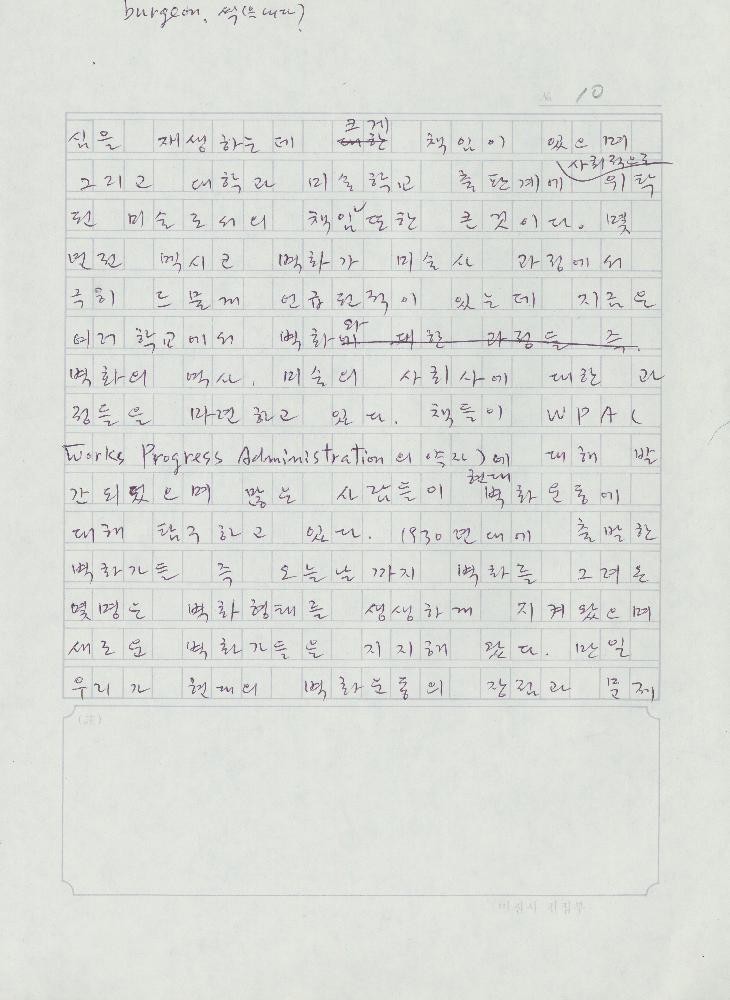 burgeon. 싹(트내다?
No. 10
심을 재생하는데 대한 크게 책임이 있으며
그리고 대학과 미술학교 출판계에 사회적으로 위탁
된 미술로서의 책임 또한 큰 것이다. 몇
년전 멕시코 벽화가 미술사 과정에서
극히 드물게 언급된적이 있는데 지금은
여러 학교에서 벽화와 대한 과정들 즉.
벽화의 역사, 미술의 사회사에 대한 과
정들을 마련하고 있다. 책들이 WPA(
Works Progress Administration의 약자)에 대해 발
간되었으며 많은 사람들이 현대 벽화운동에
대해 탐구하고 있다. 1930년대에 출발한
벽화가들 즉 오늘날까지 벽화를 그려온
몇명은 벽화형태를 생생하게 지켜왔으며
새로운 벽화가들을 지지해 왔다. 만일
우리가 현대의 벽화운동의 장점과 문제
(註)
미진사 편집부